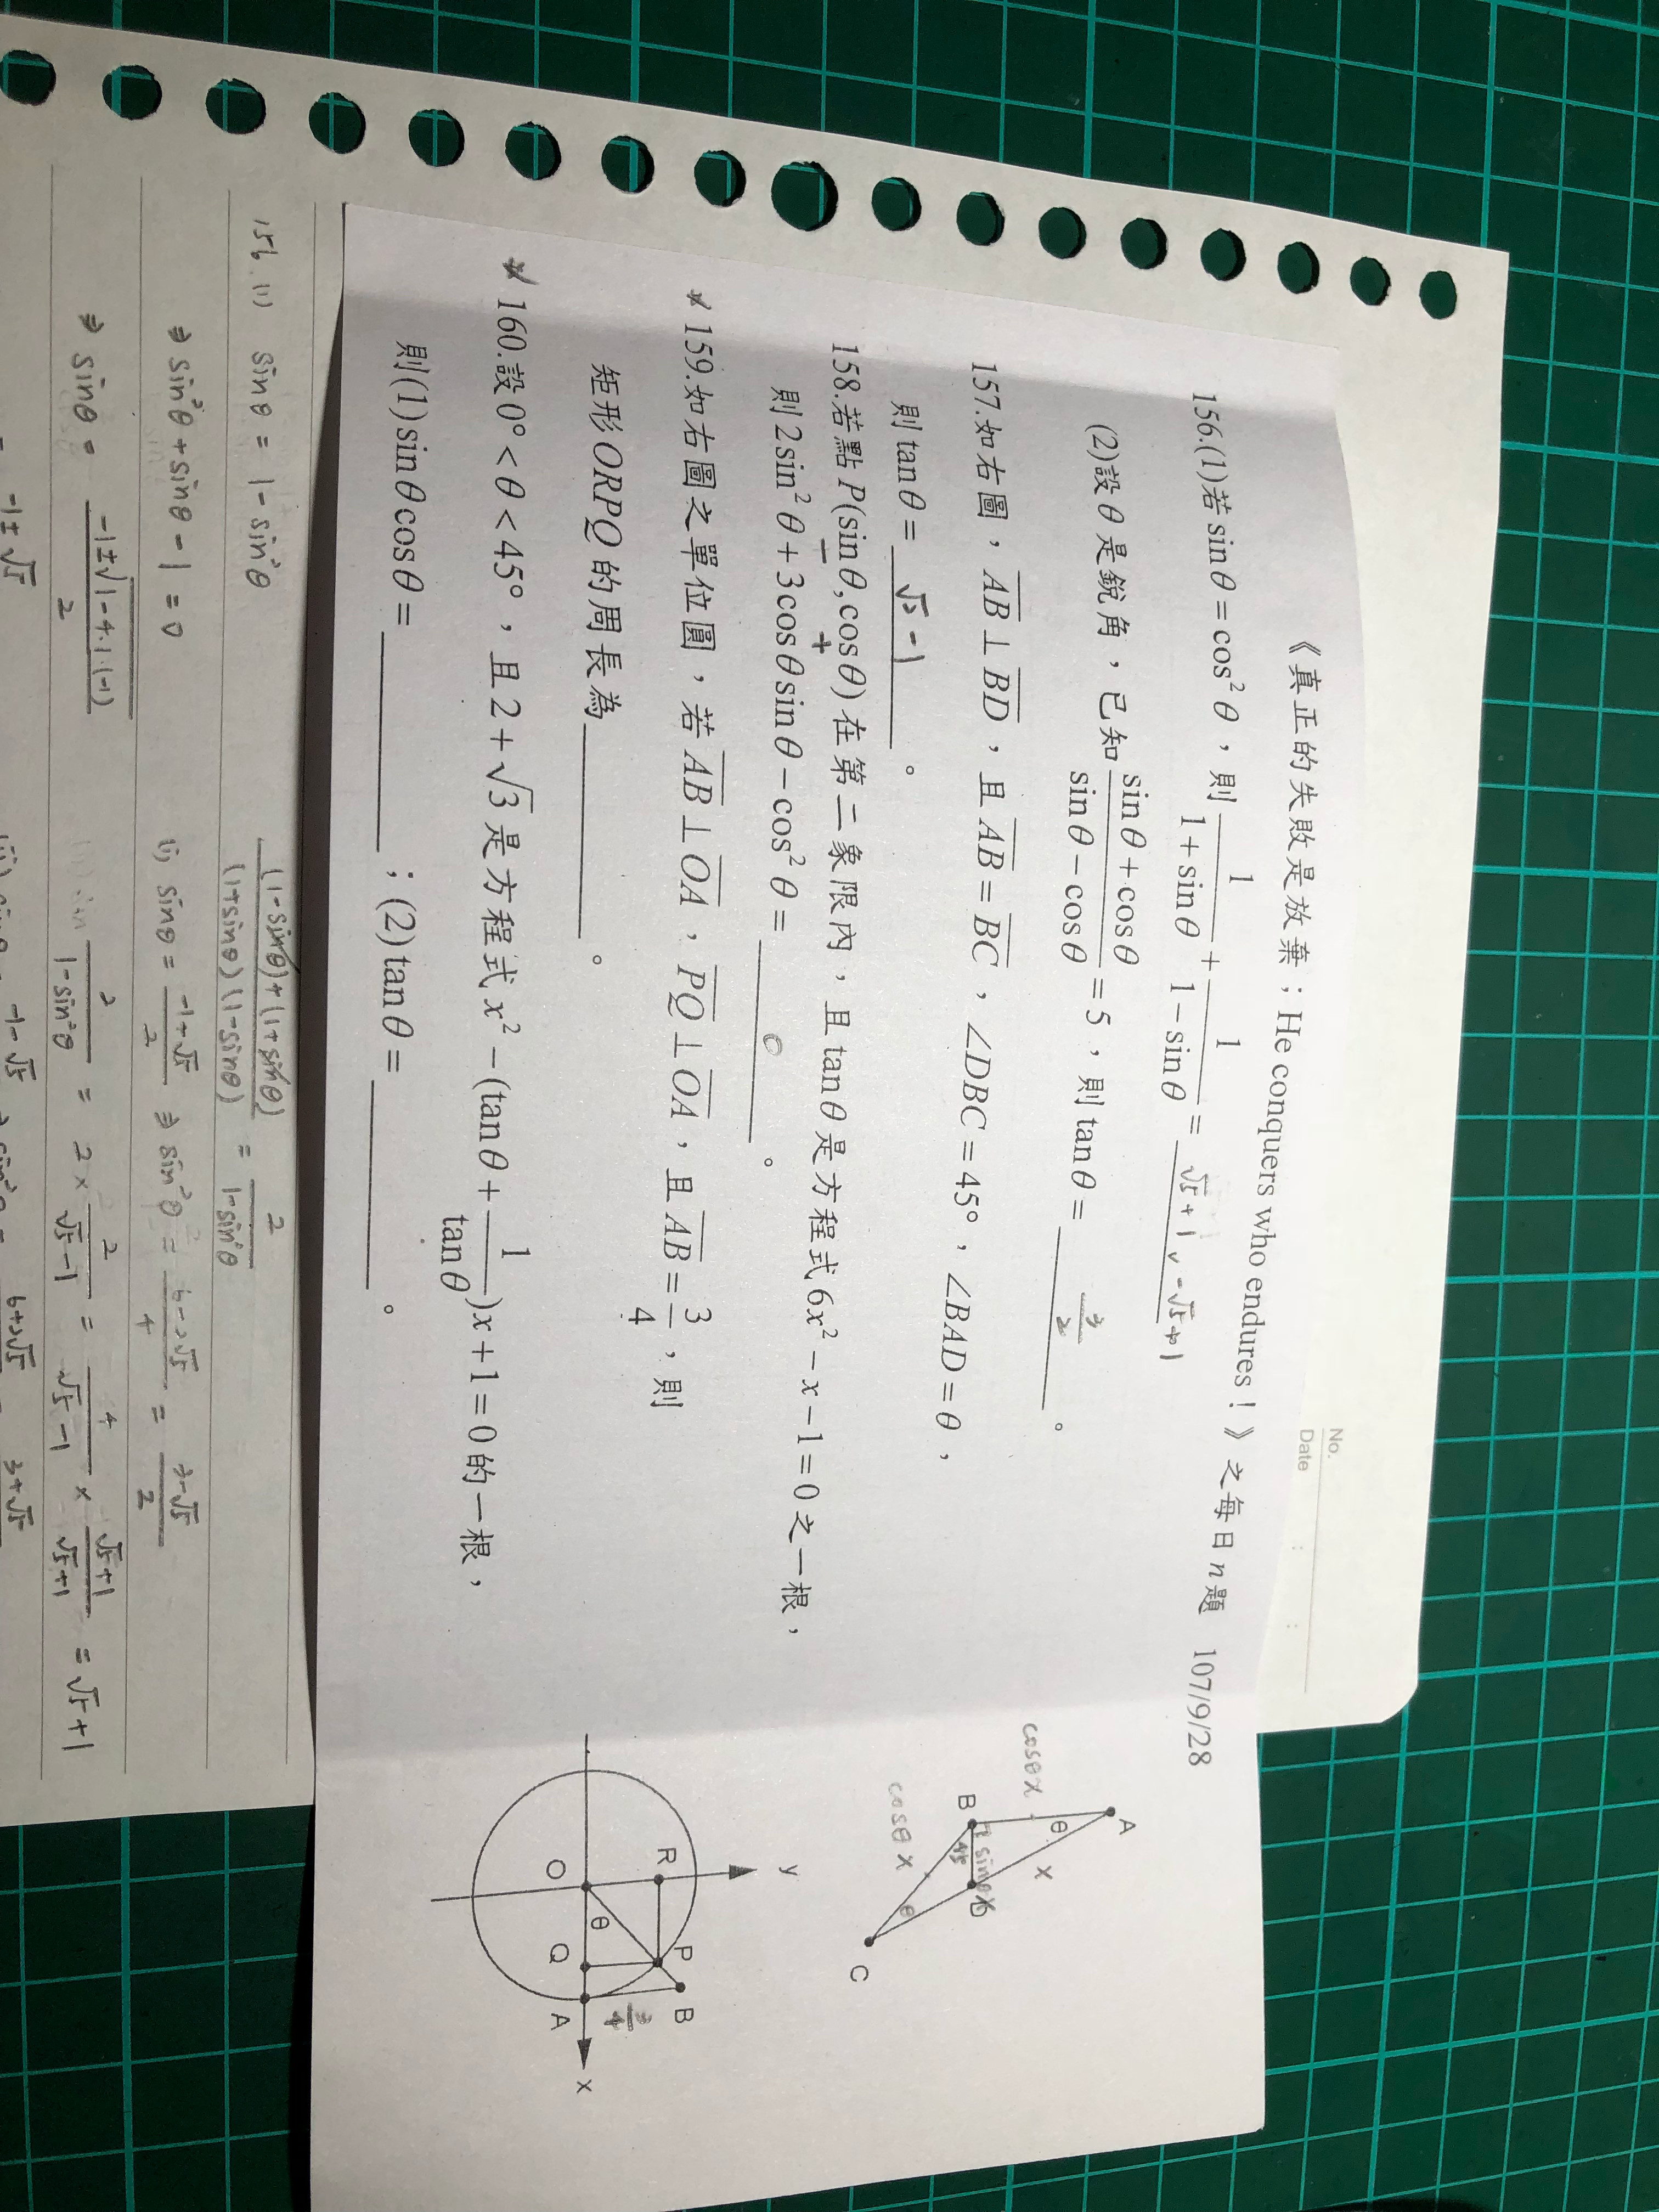 No.
Date : :
《真正的失敗是放棄；He conquers who endures！》之每日n題 107/9/28
156.(1)若 sinθ = cos²θ，則 1/(1+sinθ) + 1/(1−sinθ) = √5+1
(2)設θ是銳角，已知 (sinθ+cosθ)/(sinθ−cosθ) = 5，則 tanθ = 3/2 。
157.如右圖，AB⊥BD，且AB=BC，∠DBC=45°，∠BAD=θ，
則 tanθ = √2 −1 。
158.若點P(sinθ,cosθ)在第二象限內，且tanθ是方程式6x²−x−1=0之一根，
− +
則2sin²θ+3cosθsinθ−cos²θ= 0 。
159.如右圖之單位圓，若AB⊥OA，PQ⊥OA，且AB=3/4，則
矩形ORPQ的周長為 。
160.設0°<θ<45°，且2+√3是方程式x²−(tanθ+1/tanθ)x+1=0的一根，
則(1)sinθcosθ= ；(2)tanθ= 。
A
θ
x
cosθx
B
45
sinθx
D
cosθx
θ
C
y
R
P
B
3/4
θ
O
Q
A
x
156.(1) sinθ = 1−sin²θ
((1−sinθ)+(1+sinθ))/((1+sinθ)(1−sinθ)) = 2/(1−sin²θ)
⇒ sin²θ+sinθ−1=0
(i) sinθ = (−1+√5)/2 ⇒ sin²θ = (6−2√5)/4 = (3−√5)/2
⇒ sinθ = (−1±√(1−4·1·(−1)))/2
2/(1−sin²θ) = 2 × 2/(√5−1) = 4/(√5−1) × (√5+1)/(√5+1) = √5+1
= −1±√5
−1−√5
6+2√5
3+√5